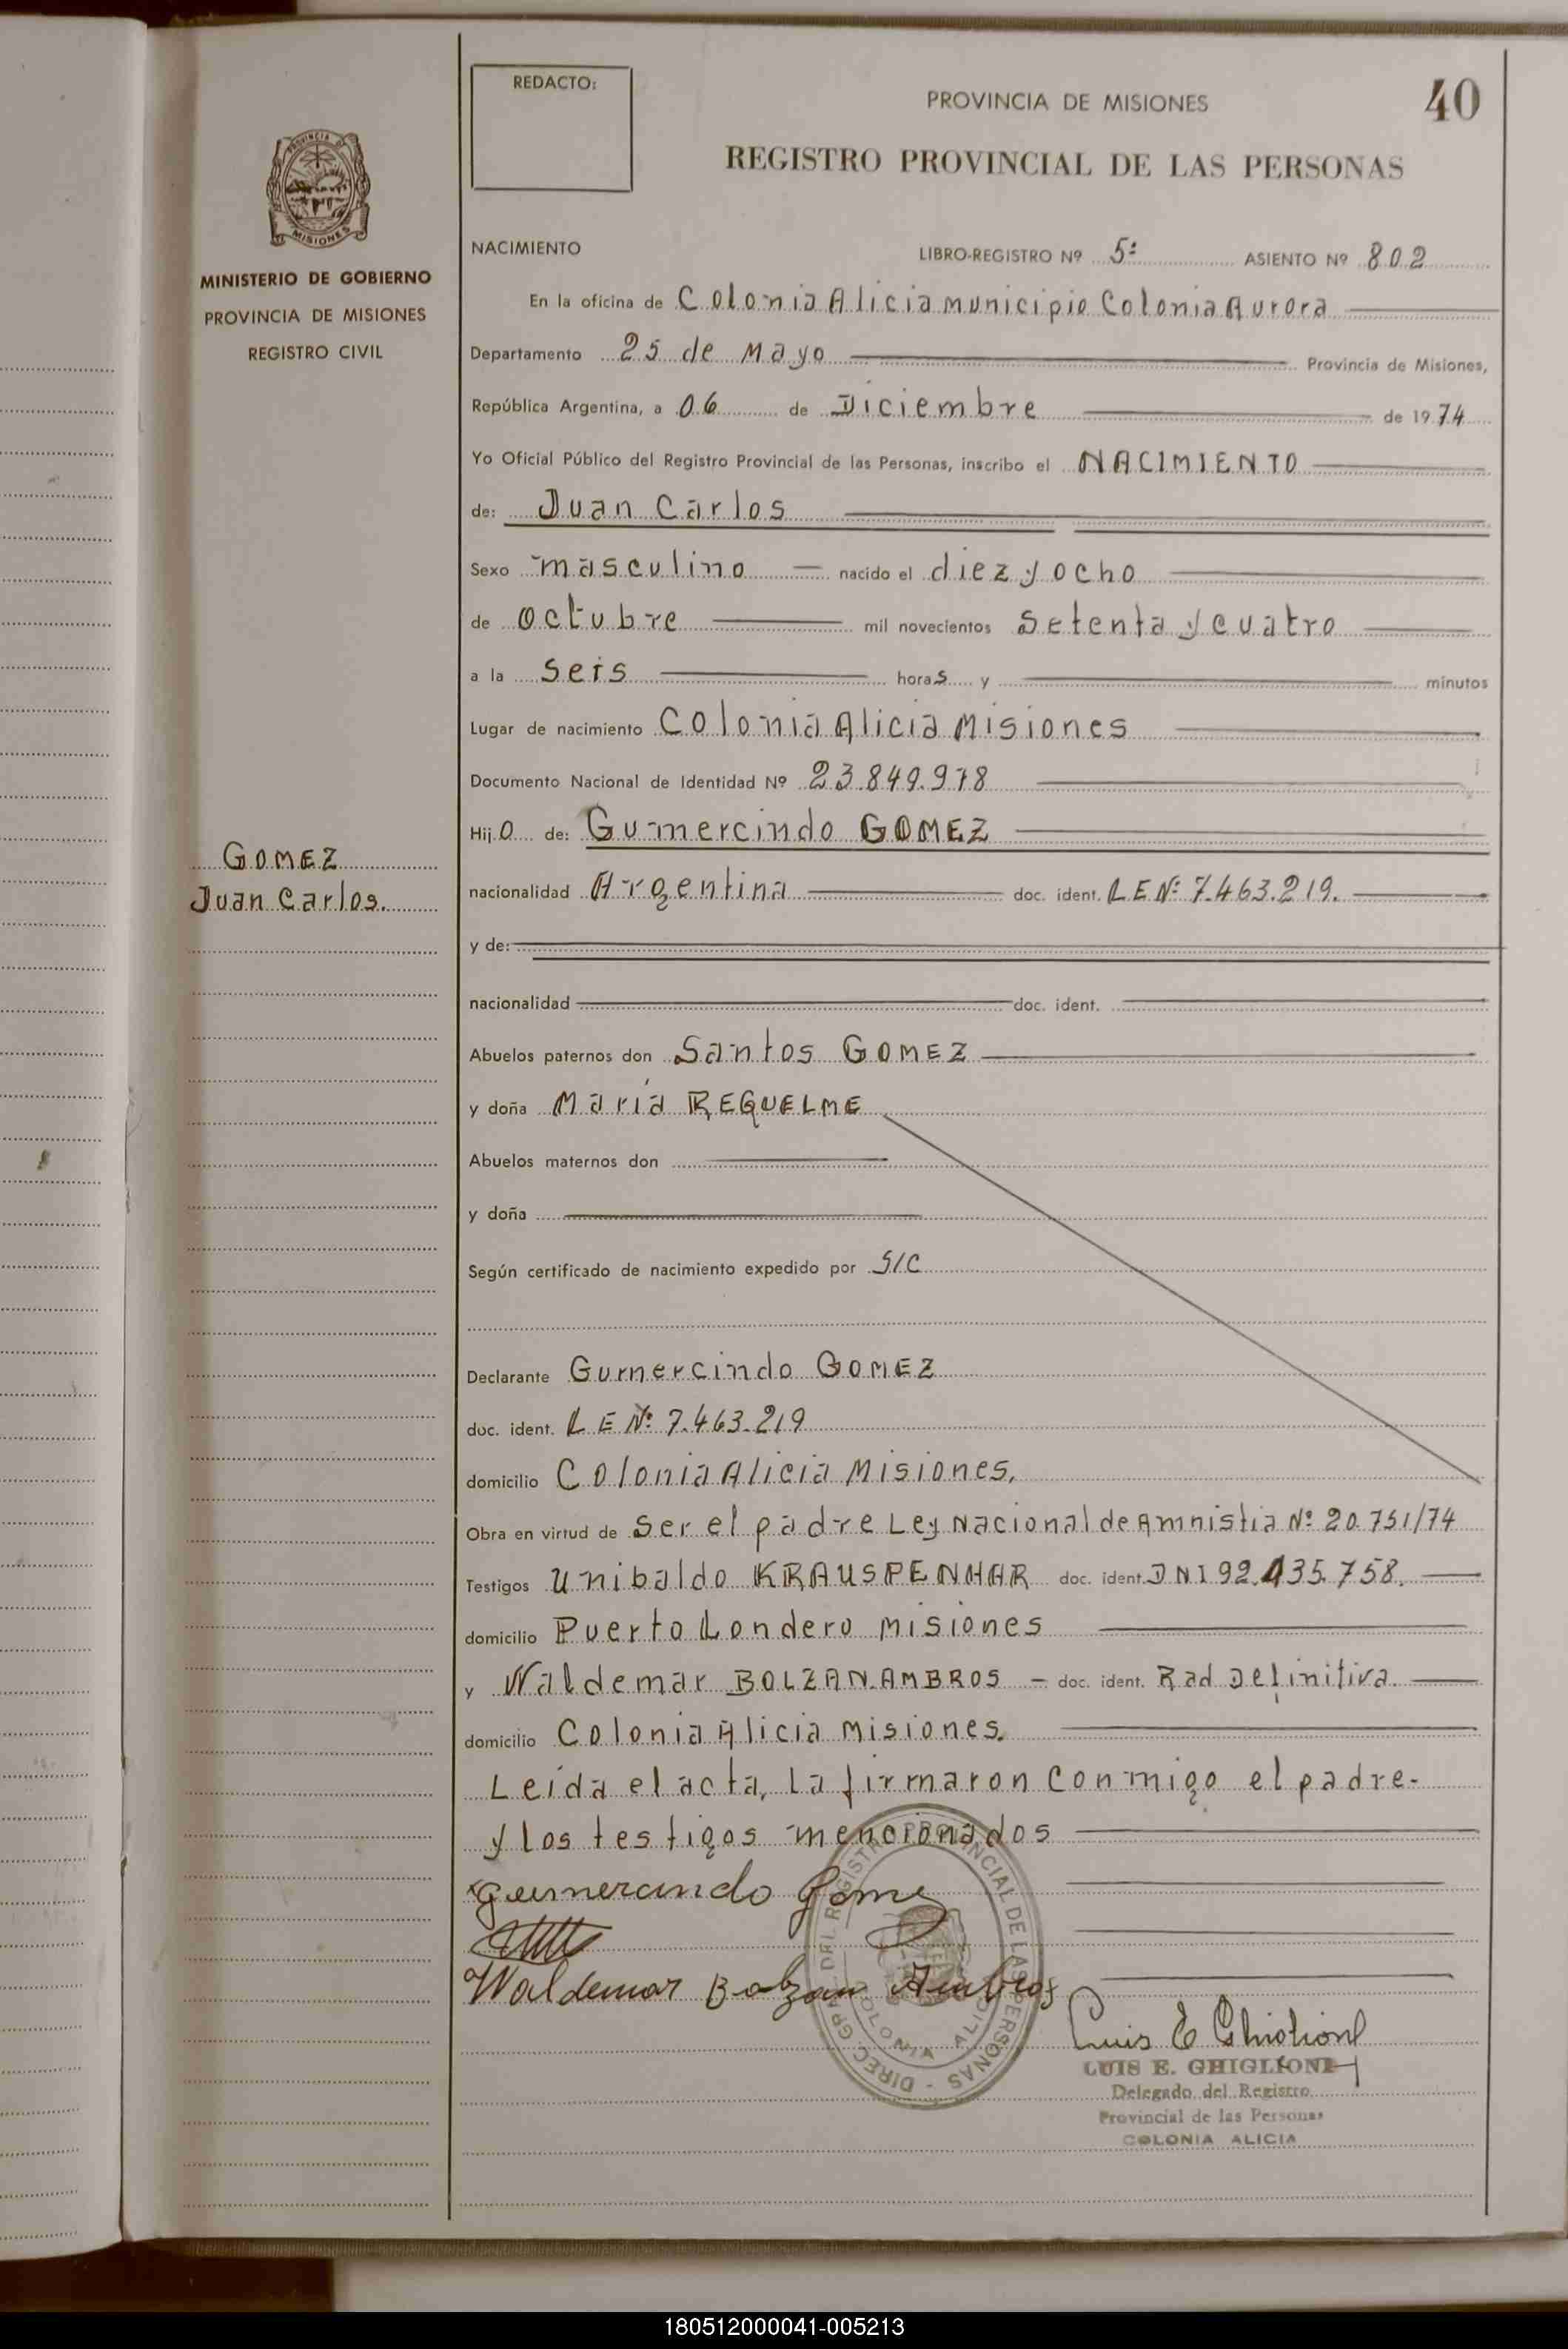 REDACTO:
PROVINCIA DE MISIONES
40
REGISTRO PROVINCIAL DE LAS PERSONAS
PROVINCIA DE
MISIONES
MINISTERIO DE GOBIERNO
PROVINCIA DE MISIONES
REGISTRO CIVIL
GOMEZ
Juan Carlos.
NACIMIENTO LIBRO-REGISTRO Nº 5º ASIENTO Nº 802
En la oficina de Colonia Alicia municipio Colonia Aurora
Departamento 25 de Mayo Provincia de Misiones,
República Argentina, a 06 de Diciembre de 1974
Yo Oficial Público del Registro Provincial de las Personas, inscribo el NACIMIENTO
de: Juan Carlos
Sexo masculino nacido el diez y ocho
de octubre mil novecientos Setenta y cuatro
a la Seis horas y minutos
Lugar de nacimiento Colonia Alicia Misiones
Documento Nacional de Identidad Nº 23.849.978
Hijo de: Gumercindo GOMEZ
nacionalidad Argentina doc. ident. L E Nº 7.463.219.
y de:
nacionalidad doc. ident.
Abuelos paternos don Santos GOMEZ
y doña María REQUELME
Abuelos maternos don
y doña
Según certificado de nacimiento expedido por S/C
Declarante Gumercindo GOMEZ
doc. ident. L E Nº 7.463.219
domicilio Colonia Alicia Misiones.
Obra en virtud de Ser el padre Ley Nacional de Amnistia Nº 20.751/74
Testigos Unibaldo KRAUSPENHAR doc. ident. DNI 92.435.758.
domicilio Puerto Londero Misiones
y Waldemar BOLZAN AMBROS - doc. ident. Rad Definitiva.
domicilio Colonia Alicia Misiones.
Leída el acta, la firmaron conmigo el padre-
y los testigos mencionados
Gumercindo Gomez
Waldemar Bolzan Ambros
DIREC. GRAL. DEL REGISTRO PROVINCIAL DE LAS PERSONAS -
COLONIA ALICIA
Luis E Ghiglioni
LUIS E. GHIGLIONI
Delegado del Registro
Provincial de las Personas
COLONIA ALICIA
180512000041-005213